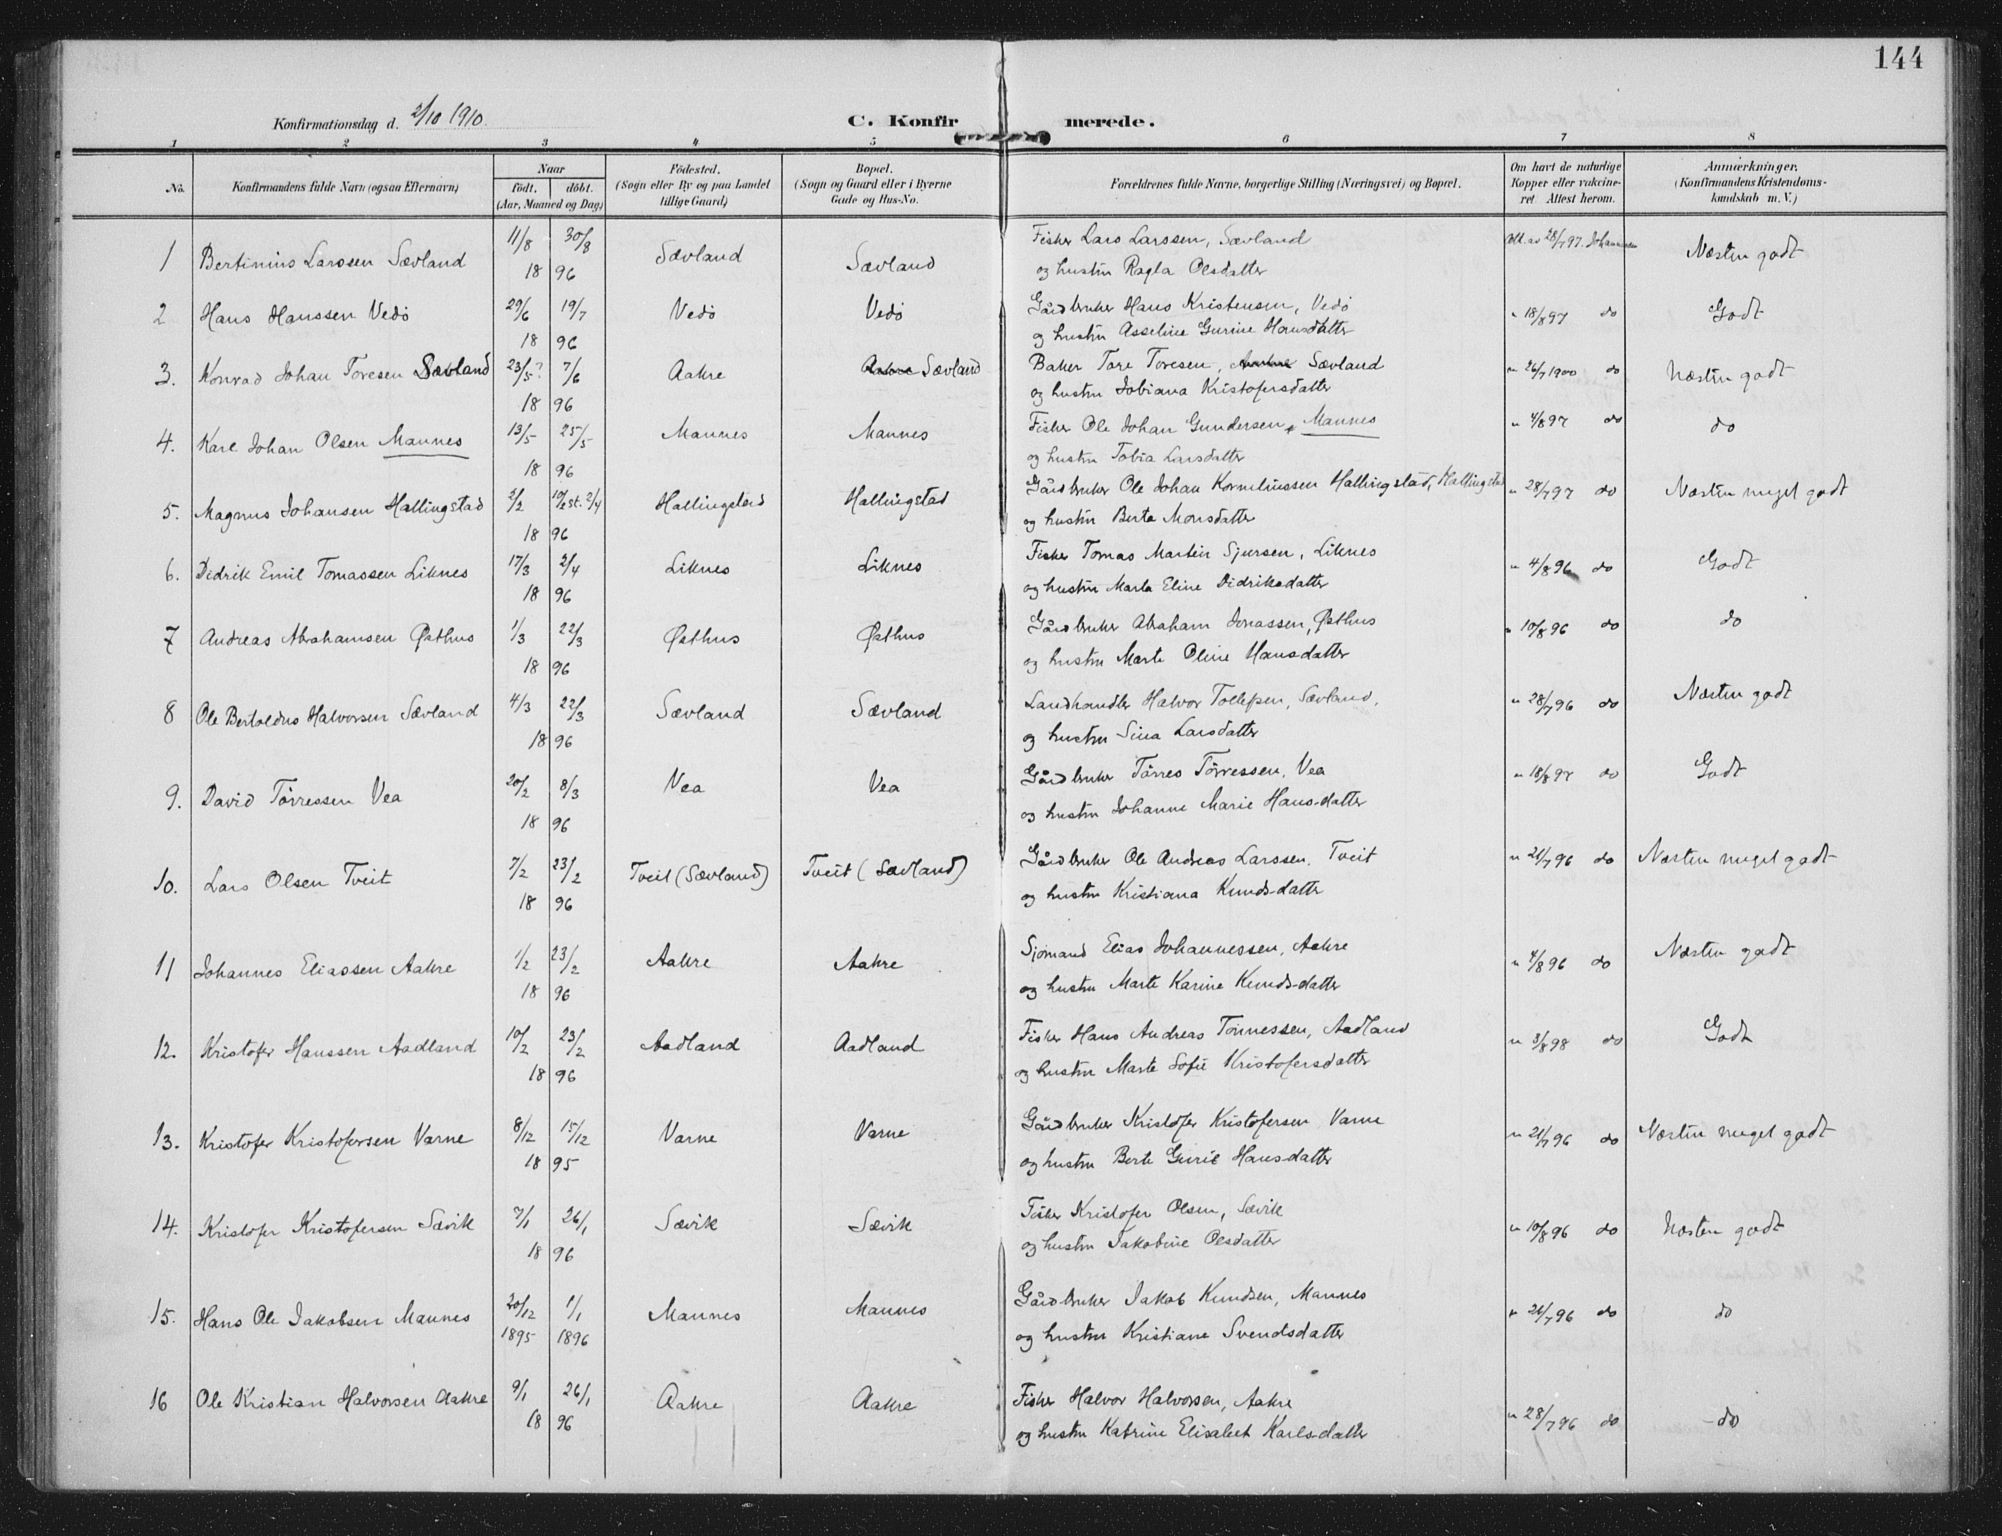 144
Konfirmationsdag d. 2/10 1910.
C. Konfirmerede.
1 2 3 4 5 6 7 8
No. Konfirmandens fulde Navn (ogsaa Efternavn)
Naar
født. døbt.
(Aar, Maaned og Dag)
Fødested.
(Sogn eller By og paa Landet
tillige Gaard)
Bopæl.
(Sogn og Gaard eller i Byerne
Gade og Hus-No.
Forældrenes fulde Navne, borgerlige Stilling (Næringsvei) og Bopæl.
Om havt de naturlige
Kopper eller vakcine-
ret. Attest herom.
Anmærkninger.
(Konfirmandens Kristendoms-
kundskab m. V.)
1 Bertinius Larssen Sævland 11/8 30/8 Sævland Sævland Fisker Lars Larssen, Sævland 28/7 97. Næsten godt
18 96 og hustru Ragla Olsdatter
2 Hans Hanssen Vedö 29/6 19/7 Vedö Vedö Gårdbruker Hans Kristensen, Vedö " 18/8 97 do Godt
18 96 og hustru Asseline Gurine Hansdatter
3. Konrad Johan Toresen Sævland 23/5? 7/6 Aakre Aakre Sævland Baker Tore Toresen, Aakre Sævland " 26/7 1900 do Næsten godt
18 96 og hustru Tobiana Kristofersdatter
4. Karl Johan Olsen Mannes 13/5 25/5 Mannes Mannes Fisker Ole Johan Gundersen, Mannes " 4/8 97 do do
18 96 og hustru Tobia Larsdatter
5. Magnus Johansen Hallingstad 2/2 10/2 st. 2/4 Hallingstad Hallingstad Gårdbruker Ole Johan Korneliussen Hallingstad, Hallingstad " 28/7 97 do Næsten meget godt
18 96 og hustru Berta Monsdatter
6. Didrik Emil Tomassen Liknes 17/3 2/4 Liknes Liknes Fisker Tomas Martin Sjursen, Liknes " 4/8 96 do Godt
18 96 og hustru Marta Eline Didriksdatter
7 Andreas Abrahamsen Østhus 1/3 22/3 Østhus Østhus Gårdbruker Abraham Jonassen, Østhus " 10/8 96 do do
18 96 og hustru Marte Oline Hansdatter
8 Ole Bertoldus Halvorsen Sævland 4/3 22/3 Sævland Sævland Landhandler Halvor Tollefsen, Sævland, " 28/7 96 do Næsten godt
18 96 og hustru Sina Larsdatter
9. David Törressen Vea 20/2 8/3 Vea Vea Gårdbruker Törres Törressen, Vea " 18/8 97 do Godt
18 96 og hustru Johanne Marie Hans-datter
10. Lars Olsen Tveit 7/2 23/2 Tveit (Sævland) Tveit (Sævland) Gårdbruker Ole Andreas Larssen, Tveit " 21/7 96 do Næsten meget godt
18 96 og hustru Kristiana Knuds-datter
11 Johannes Eliassen Aakre 1/2 23/2 Aakre Aakre Sjömand Elias Johannessen, Aakre " 4/8 96 do Næsten godt
18 96 og hustru Marte Karine Knuds-datter
12. Kristofer Hanssen Aadland 10/2 23/2 Aadland Aadland Fisker Hans Andreas Tönnessen, Aadland " 3/8 98 do Godt
18 96 og hustru Marte Sofie Kristofersdatter
13. Kristofer Kristofersen Varne 8/12 15/12 Varne Varne Gårdbruker Kristofer Kristofersen Varne " 21/7 96 do Næsten meget godt
18 95 og hustru Berte Gurie Hans-datter
14. Kristofer Kristofersen Sævik 7/1 26/1 Sævik Sævik Fisker Kristofer Olsen, Sævik " 10/8 96 do Næsten godt
18 96 og hustru Jakobine Olsdatter
15. Hans Ole Jakobsen Mannes 20/12 1/1 Mannes Mannes Gårdbruker Jakob Knudsen, Mannes " 21/7 96 do do
1895 1896 og hustru Kristiane Svendsdatter
16 Ole Kristian Halvorsen Aakre 9/1 26/1 Aakre Aakre Fisker Halvor Halvorsen, Aakre " 28/7 96 do -do
18 96 og hustru Katrine Elisabet Karls-datter